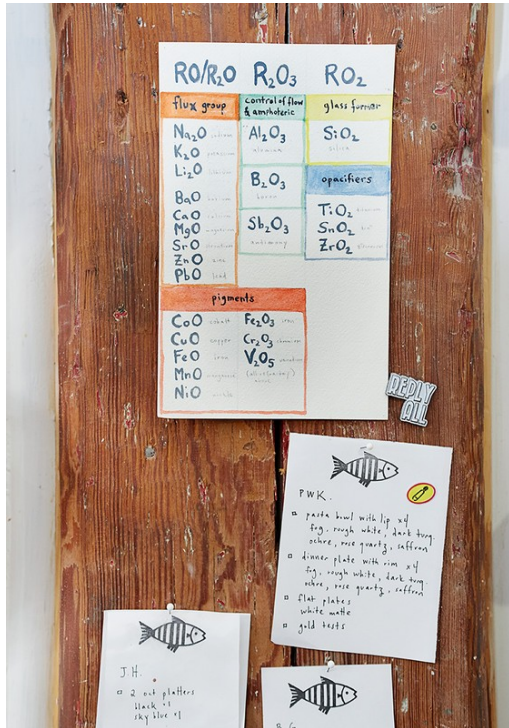 RO/R₂O R₂O₃ RO₂
flux group
Na₂O
K₂O
Li₂O
BaO
CaO
MgO
SrO
ZnO zinc
PbO lead
control of flow
& amphoteric
Al₂O₃
alumina
B₂O₃
boron
Sb₂O₃
antimony
glass former
SiO₂
silica
opacifiers
TiO₂
SnO₂ tin
ZrO₂
pigments
CoO cobalt
CuO copper
FeO iron
MnO
NiO nickel
Fe₂O₃ iron
Cr₂O₃
V₂O₅
REPLY
ALL
PWK.
pasta bowl with lip x4
fog, rough white, dark tung.
ochre, rose quartz, saffron
dinner plate with rim x4
fog, rough white, dark tung.
ochre, rose quartz, saffron
flat plates
white matte
gold tests
J.H.
2 oct platters
black x1
sky blue x1